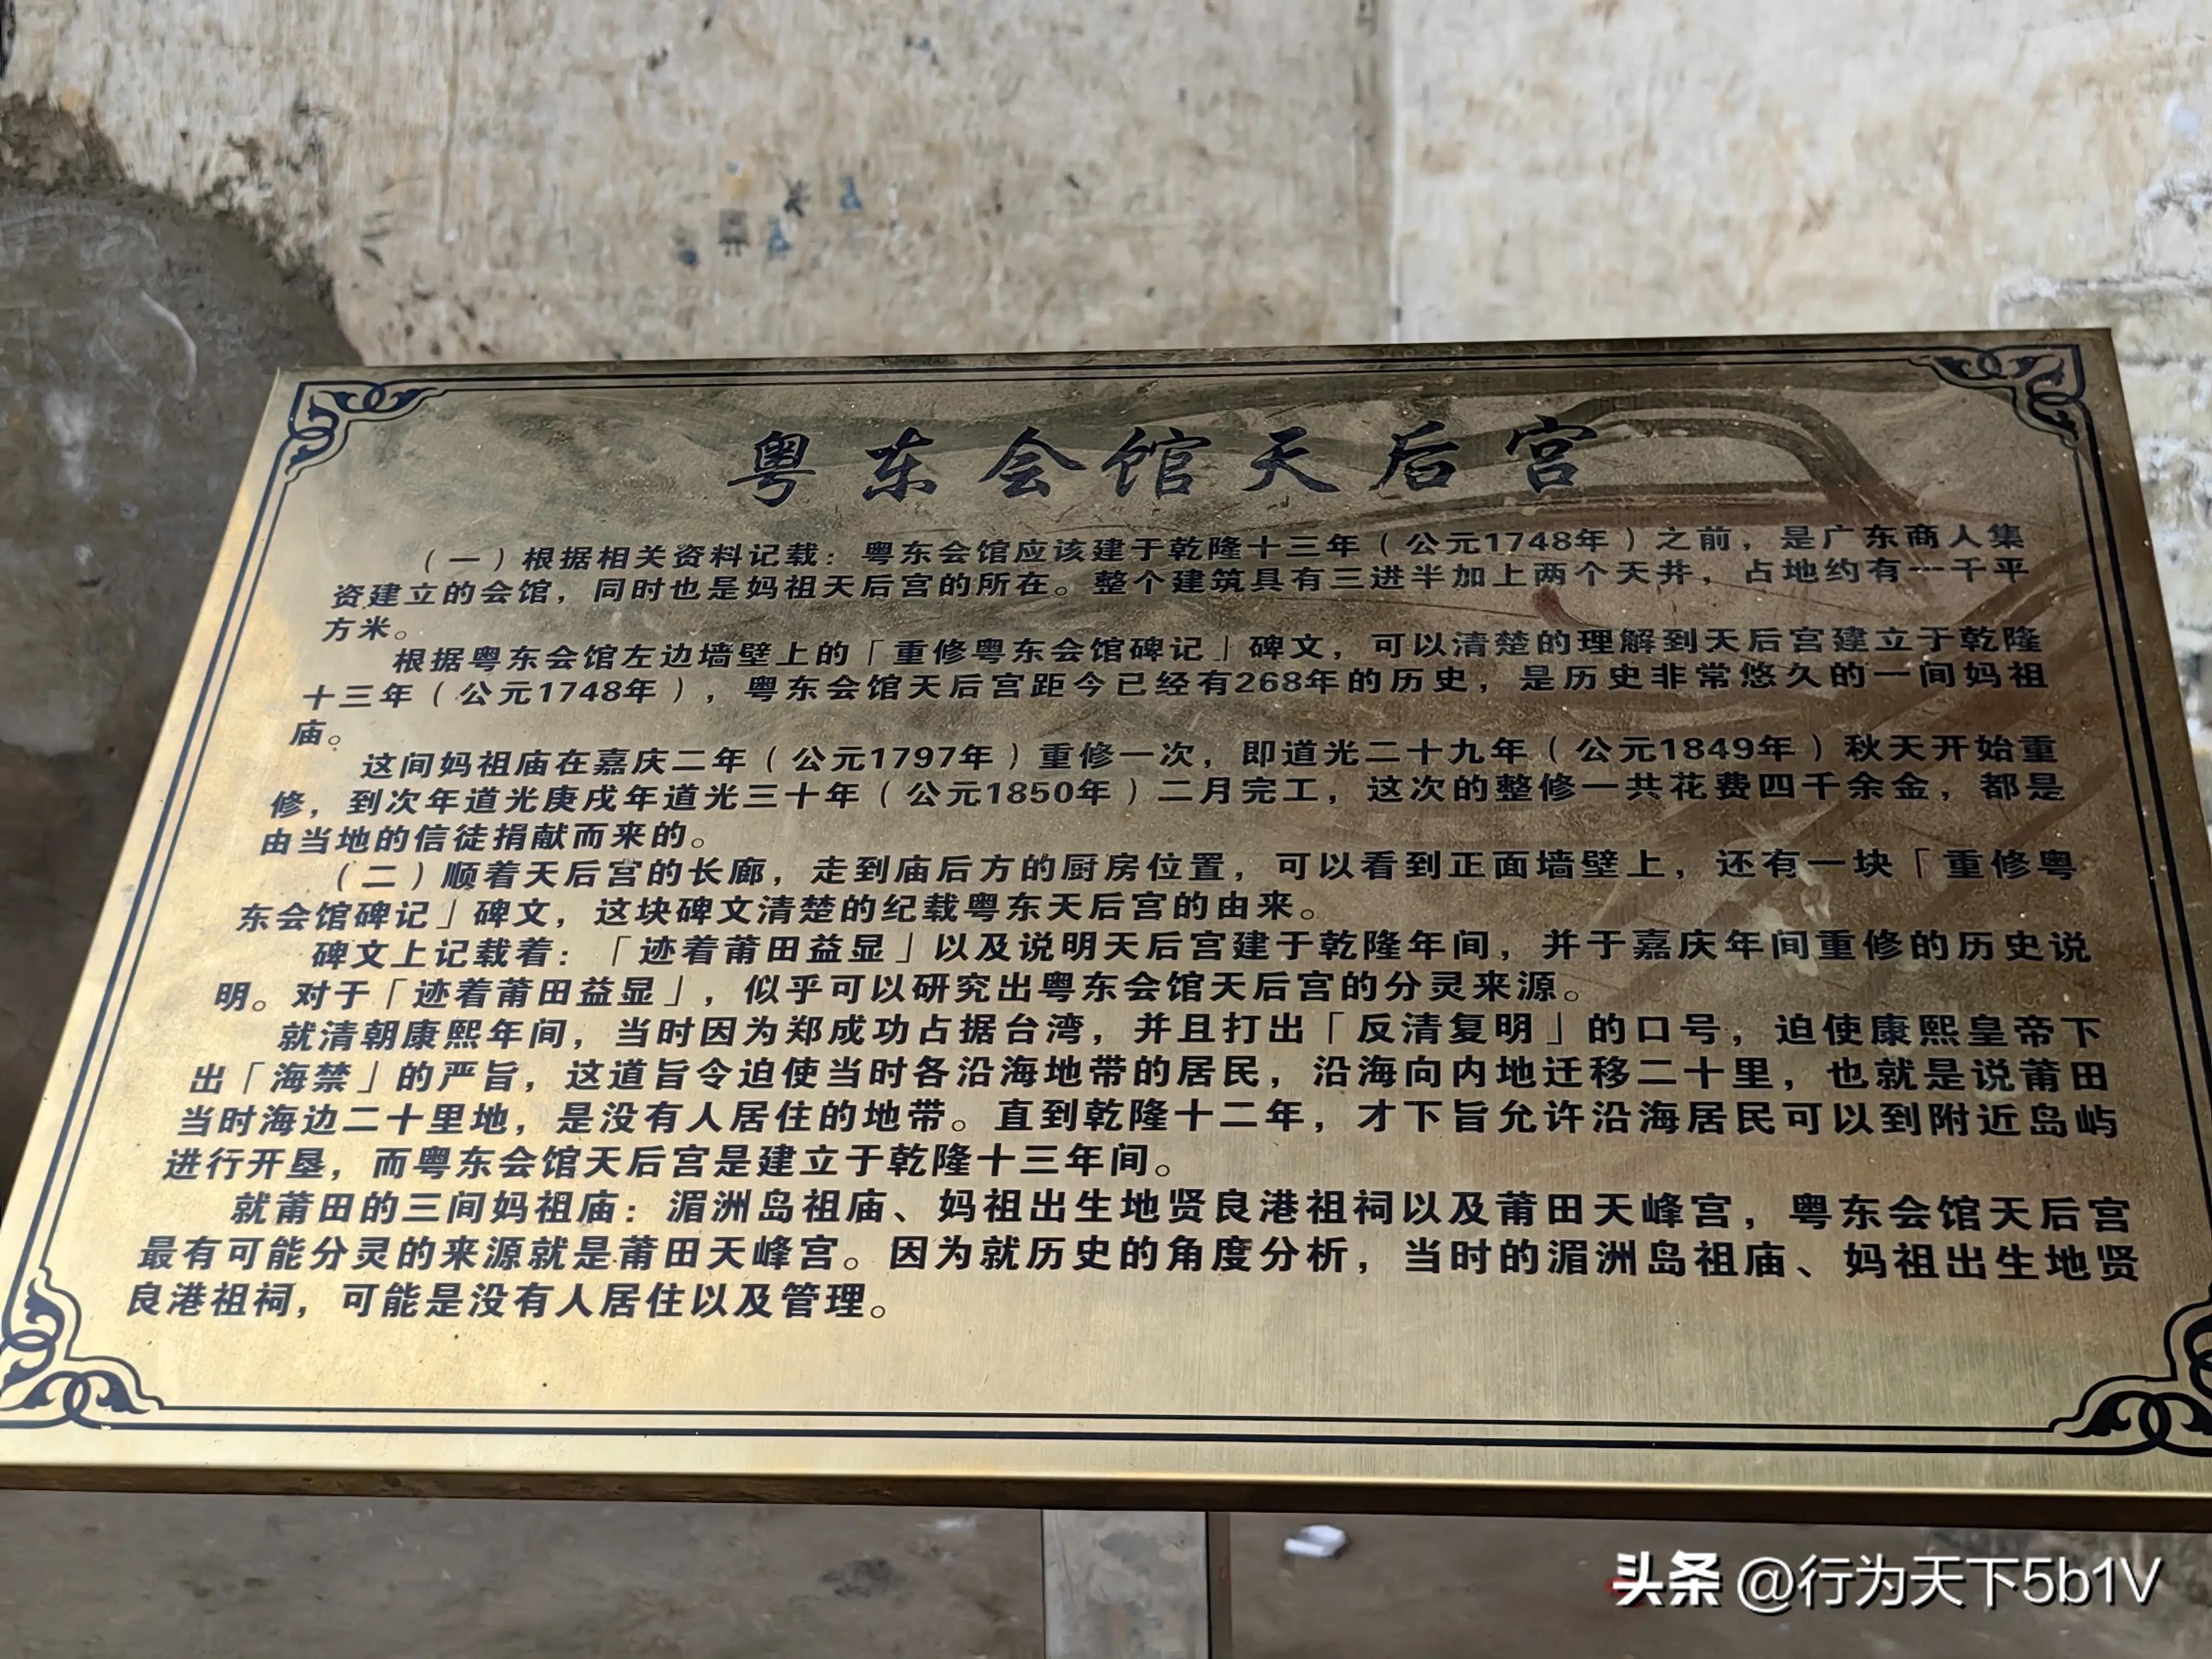 粤东会馆天后宫
（一）根据相关资料记载：粤东会馆应该建于乾隆十三年（公元1748年）之前，是广东商人集
资建立的会馆，同时也是妈祖天后宫的所在。整个建筑具有三进半加上两个天井，占地约有一千平
方米。
根据粤东会馆左边墙壁上的「重修粤东会馆碑记」碑文，可以清楚的理解到天后宫建立于乾隆
十三年（公元1748年），粤东会馆天后宫距今已经有268年的历史，是历史非常悠久的一间妈祖
庙。
这间妈祖庙在嘉庆二年（公元1797年）重修一次，即道光二十九年（公元1849年）秋天开始重
修，到次年道光庚戌年道光三十年（公元1850年）二月完工，这次的整修一共花费四千余金，都是
由当地的信徒捐献而来的。
（二）顺着天后宫的长廊，走到庙后方的厨房位置，可以看到正面墙壁上，还有一块「重修粤
东会馆碑记」碑文，这块碑文清楚的纪载粤东天后宫的由来。
碑文上记载着：「迹着莆田益显」以及说明天后宫建于乾隆年间，并于嘉庆年间重修的历史说
明。对于「迹着莆田益显」，似乎可以研究出粤东会馆天后宫的分灵来源。
就清朝康熙年间，当时因为郑成功占据台湾，并且打出「反清复明」的口号，迫使康熙皇帝下
出「海禁」的严旨，这道旨令迫使当时各沿海地带的居民，沿海向内地迁移二十里，也就是说莆田
当时海边二十里地，是没有人居住的地带。直到乾隆十二年，才下旨允许沿海居民可以到附近岛屿
进行开垦，而粤东会馆天后宫是建立于乾隆十三年间。
就莆田的三间妈祖庙：湄洲岛祖庙、妈祖出生地贤良港祖祠以及莆田天峰宫，粤东会馆天后宫
最有可能分灵的来源就是莆田天峰宫。因为就历史的角度分析，当时的湄洲岛祖庙、妈祖出生地贤
良港祖祠，可能是没有人居住以及管理。
头条 @行为天下5b1V